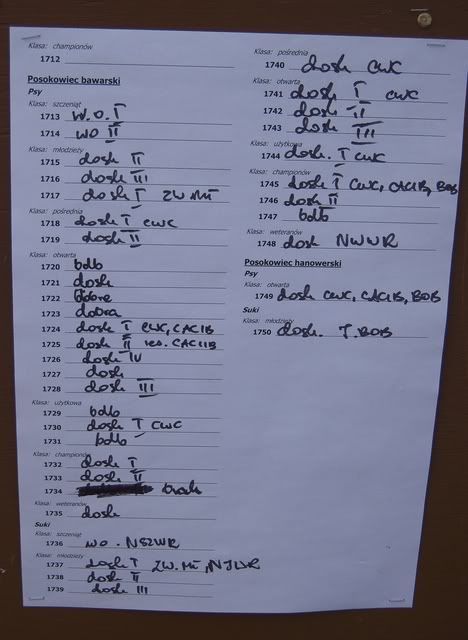 Klasa: championów
1712
Posokowiec bawarski
Psy
Klasa: szczeniąt
1713 W.O. I
1714 WO II
Klasa: młodzieży
1715 dosk II
1716 dosk III
1717 dosk I ZW.MŁ
Klasa: pośrednia
1718 dosk I CWC
1719 dosk II
Klasa: otwarta
1720 bdb
1721 dosk
1722 dobra
1723 dobra
1724 dosk I CWC, CACIB
1725 dosk II res. CACIB
1726 dosk IV
1727 dosk
1728 dosk III
Klasa: użytkowa
1729 bdb
1730 dosk I CWC
1731 bdb
Klasa: championów
1732 dosk I
1733 dosk II
1734 brak
Klasa: weteranów
1735 dosk
Suki
Klasa: szczeniąt
1736 wo. NSZWR
Klasa: młodzieży
1737 dosk I ZW.MŁ, NJWR
1738 dosk II
1739 dosk III
Klasa: pośrednia
1740 dosk CWC
Klasa: otwarta
1741 dosk I CWC
1742 dosk II
1743 dosk III
Klasa: użytkowa
1744 dosk. I CWC
Klasa: championów
1745 dosk I CWC, CACIB, BOB
1746 dosk II
1747 bdb
Klasa: weteranów
1748 dosk NWWR
Posokowiec hanowerski
Psy
Klasa: otwarta
1749 dosk CWC, CACIB, BOB
Suki
Klasa: młodzieży
1750 dosk. J.BOB